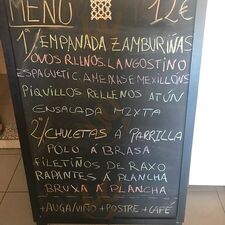 MENÚ 12€
1º/ EMPANADA ZAMBURIÑAS
OVOS RLLNOS. LANGOSTINO
ESPAGUETIC. AMEIXAS E MEXILLONS
PIQUILLOS RELLENOS ATÚN
ENSALADA MIXTA
2º/ CHULETAS Á PARRILLA
POLO Á BRASA
FILETIÑOS DE RAXO
RAPANTES Á PLANCHA
BRUXA Á PLANCHA
+AUGA/VIÑO + POSTRE + CAFÉ